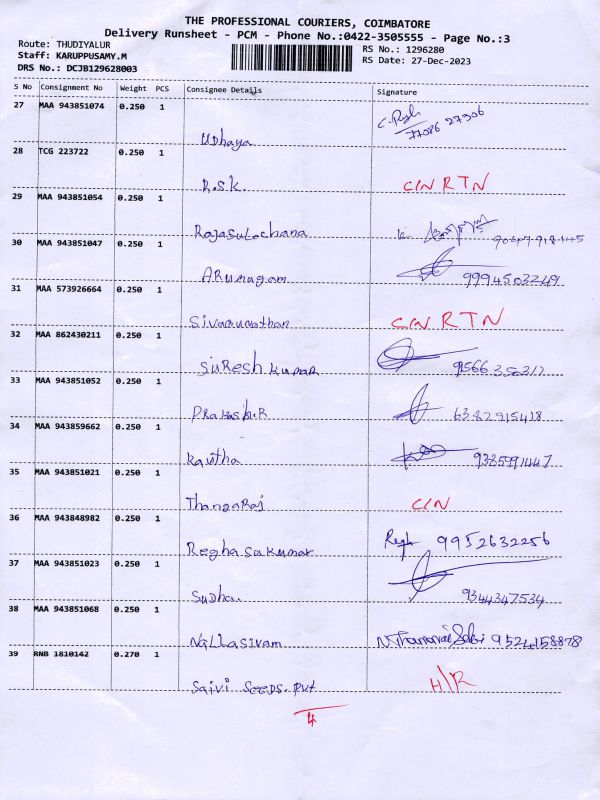 THE PROFESSIONAL COURIERS, COIMBATORE
Delivery Runsheet - PCM - Phone No.:0422-3505555 - Page No.:3
Route: THUDIYALUR
RS No.: 1296280
Staff: KARUPPUSAMY.M
RS Date: 27-Dec-2023
DRS No.: DCJB129628003
S No Consignment No Weight PCS Consignee Details Signature
27 MAA 943851074 0.250 1
Udhaya 77086 27306
28 TCG 223722 0.250 1
R.S.K. C/N RTN
29 MAA 943851054 0.250 1
Rajasulochana
30 MAA 943851047 0.250 1
ARumugam 9994503249
31 MAA 573926664 0.250 1
C/N RTN
32 MAA 862430211 0.250 1
SuResh kumar
33 MAA 943851052 0.250 1
Prakash.R 6382915418
34 MAA 943859662 0.250 1
Kavitha 9385991447
35 MAA 943851021 0.250 1
ThangaRaj C/N
36 MAA 943848982 0.250 1
Regha sukumar 9952632256
37 MAA 943851023 0.250 1
Sudha. 9344347534
38 MAA 943851068 0.250 1
Nallasivam 9524158878
39 RNB 1810142 0.270 1
Saivi Seeds. Pvt H/R
4